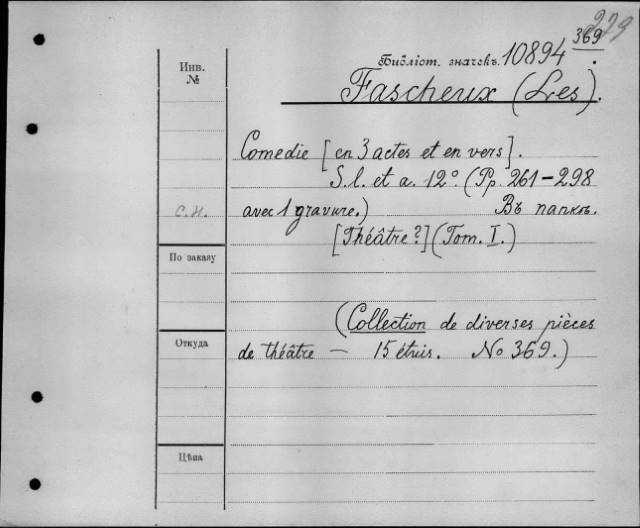 279
Инв.
№
Библіот. значекъ. 10894 369.
Fascheux (Les).
Comedie [en 3 actes et en vers].
S. l. et a. 12°. (Pp. 261-298
с.н. avec 1 gravure.) Въ папкѣ.
[Théâtre?] (Tom. I.)
По заказу
(Collection de diverses pièces
Откуда
de théâtre — 15 étuis. No 369.)
Цѣна